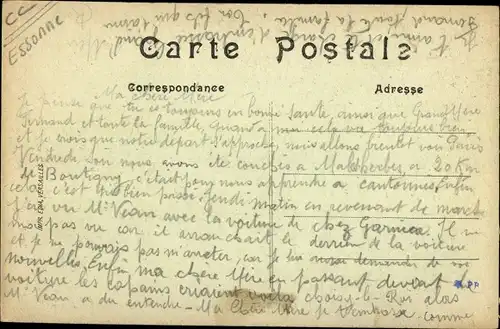 CC
ESSONNE
Carte Postale
Correspondance
Adresse
Ma chère Mère
Je pense que tu es toujours en bonne santé, ainsi que Grand Mère
Fernand et toute la famille, quand a moi cela va toujours bien
et je crois que notre départ s'approche, nous allons bientôt voir Paris
Vendredi soir nous avons été couchés a Malesherbes, a 20 Km
de Boutigny, c'était pour nous apprendre a cantonner. Enfin
cela c'est très bien passé. Jeudi matin en revenant de marche
j'ai vu Mr Vean avec la voiture de chez Garnica. Il ne
ma pas vu car il arrachait le derrière de la voiture
et je ne pouvais pas m'arrêter, car je lui aurai demander de vos
nouvelles, Enfin ma chère Mère en passant devant la
voiture les copains criaient voila Choisy-le-Roi alors
Mr Vean a du entendre - Ma Chère Mère je t'embrasse comme
je t'aime et toute la famille. Ton fils qui t'aime